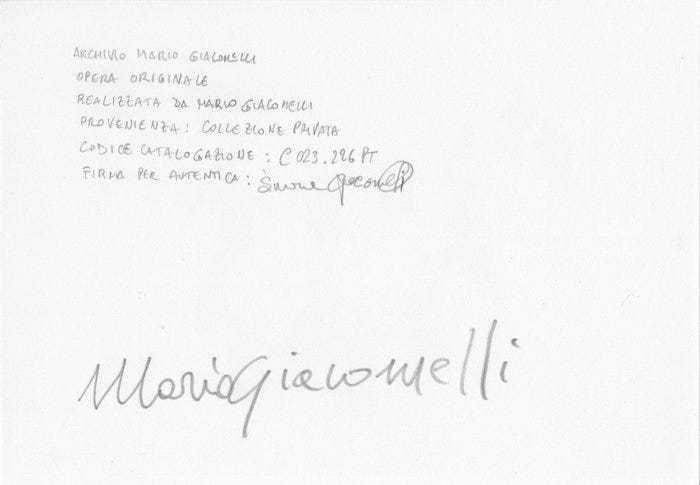 ARCHIVIO MARIO GIACOMELLI
OPERA ORIGINALE
REALIZZATA DA MARIO GIACOMELLI
PROVENIENZA: COLLEZIONE PRIVATA
CODICE CATALOGAZIONE: C 023.226 PT
FIRMA PER AUTENTICA: Simone Giacomelli
Mario Giacomelli